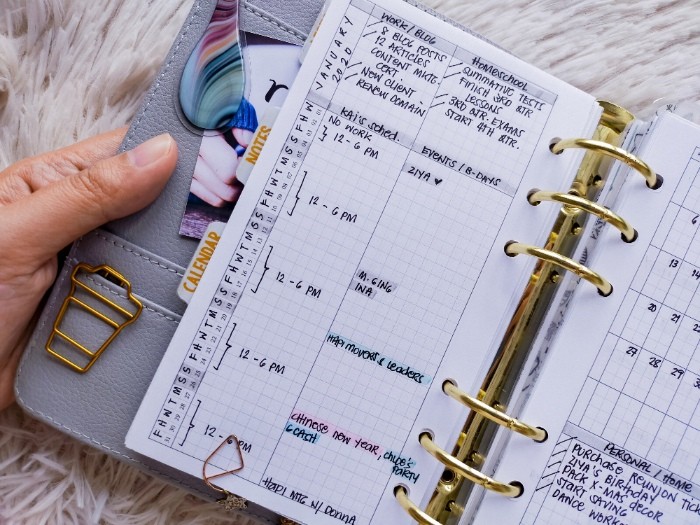 JANUARY 2020
WORK / BLOG
8 BLOG POSTS
12 ARTICLES
CONTENT MKTG.
CERT.
NEW CLIENT
RENEW DOMAIN
HOMESCHOOL
SUMMATIVE TESTS
FINISH 3RD QTR
LESSONS
3RD QTR. EXAMS
START 4TH QTR.
KAI'S SCHED.
NO WORK
12 - 6 PM
12 - 6 PM
12 - 6 PM
12 - 6 PM
12 - 6 PM
EVENTS / B-DAYS
ZIYA ♥
M-GING
INA
HAPI MOVERS & LEADERS
CHINESE NEW YEAR, CHLOE'S
GCASH
PARTY
HAPI MTG W/ DONNA
NOTES
CALENDAR
6
13
14
20
21
27
28
29
PERSONAL / HOME
PURCHASE REUNION TI
ZIYA'S BIRTHDAY
PACK X-MAS DECOR
START SAVING
DANCE WORK